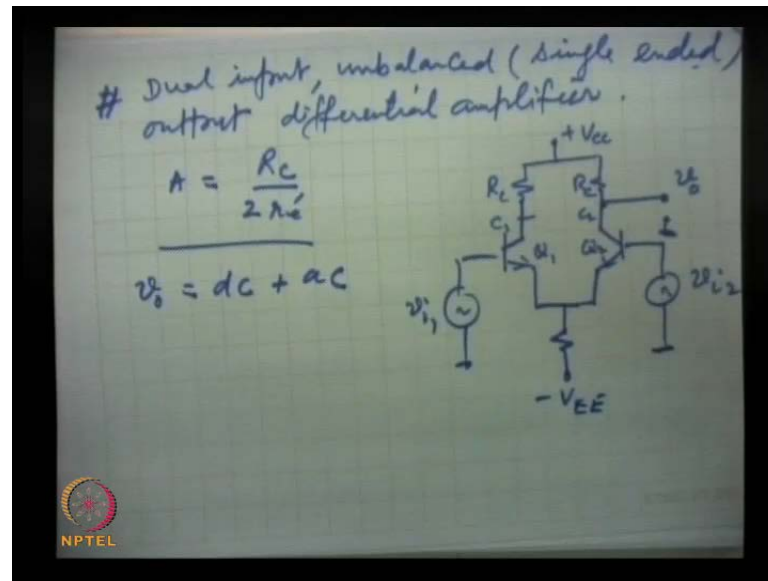 # Dual input, unbalanced (single ended)
output differential amplifier.
A = Rc / 2 ré
v₀ = dc + ac
+ Vcc
Rc
Rc
v₀
C₁
C₂
Q₁
Q₂
vi₁
vi₂
- VEE
NPTEL